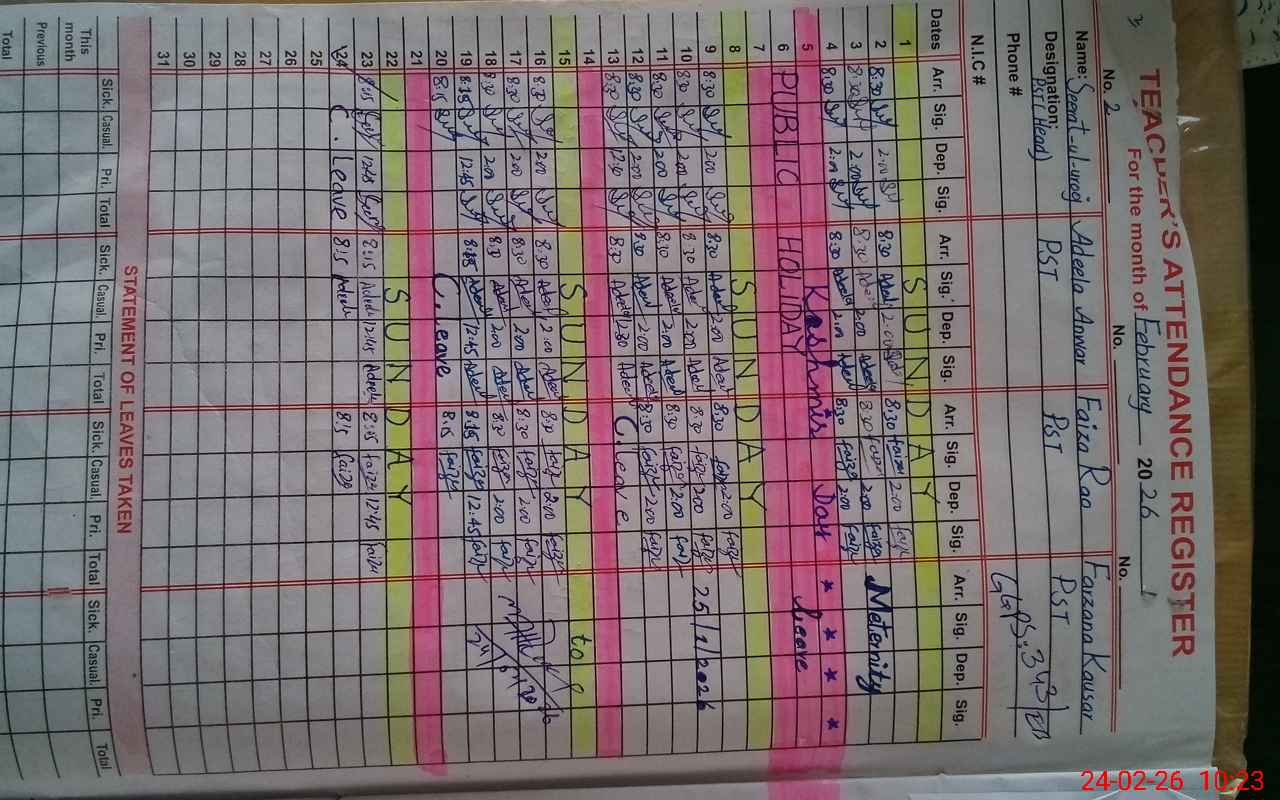 TEACHER'S ATTENDANCE REGISTER
For the month of February 2026
No. 2 No. No. 1
Name: Seerat-ul-uraj Adeela Anwar Faiza Rao Farzana Kausar
Designation: PST (Head) PST PST PST
Phone #
N.I.C #
Dates Arr. Sig. Dep. Sig. Arr. Sig. Dep. Sig. Arr. Sig. Dep. Sig. Arr. Sig. Dep. Sig.
1 SUNDAY
2 8:30 2:00 8:30 Adeel 2:00 8:30 faiza 2:00 faiza Meternity
3 8:30 2:00 8:30 Adeel 2:00 Adeel 8:30 faiza 2:00 faiza
4 8:30 2:00 8:30 Adeel 2:00 Adeel 8:30 faiza 2:00 faiza * * * *
5 Kashmir Day Leave
6 PUBLIC HOLIDAY
7
8 SUNDAY
9 8:30 2:00 8:30 Adeel 2:00 Adeel 8:30 faiza 2:00 faiza
10 8:30 2:00 8:30 Adeel 2:00 Adeel 8:30 faiza 2:00 faiza 25/1/2026
11 8:30 2:00 8:30 Adeel 2:00 Adeel 8:30 faiza 2:00 faiza
12 8:30 2:00 8:30 Adeel 2:00 Adeel 8:30 faiza 2:00 faiza
13 8:30 12:30 8:30 Adeel 12:30 Adeel C. Leave
14
15 SUNDAY to
16 8:30 2:00 8:30 Adeel 2:00 Adeel 8:30 faiza 2:00 faiza
17 8:30 2:00 8:30 Adeel 2:00 Adeel 8:30 faiza 2:00 faiza
18 8:30 2:00 8:30 Adeel 2:00 Adeel 8:30 faiza 2:00 faiza
19 8:15 12:45 8:15 Adeel 12:45 Adeel 8:15 faiza 12:45 faiza
20 8:15 C. Leave 8:15 faiza
21
22 SUNDAY
23 8:15 12:45 8:15 Adeel 12:45 Adeel 8:15 faiza 12:45 faiza
24 C. Leave 8:15 Adeel 8:15 faiza
25
26
27
28
29
30
31
STATEMENT OF LEAVES TAKEN
Sick. Casual. Pri. Total Sick. Casual. Pri. Total Sick. Casual. Pri. Total Sick. Casual. Pri. Total
This month
Previous
Total
24-02-26 10:23